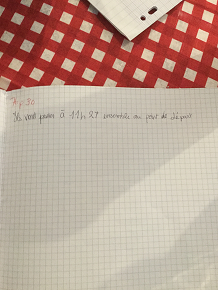 Ils vont passer à 11h 27 ensemble au point de départ